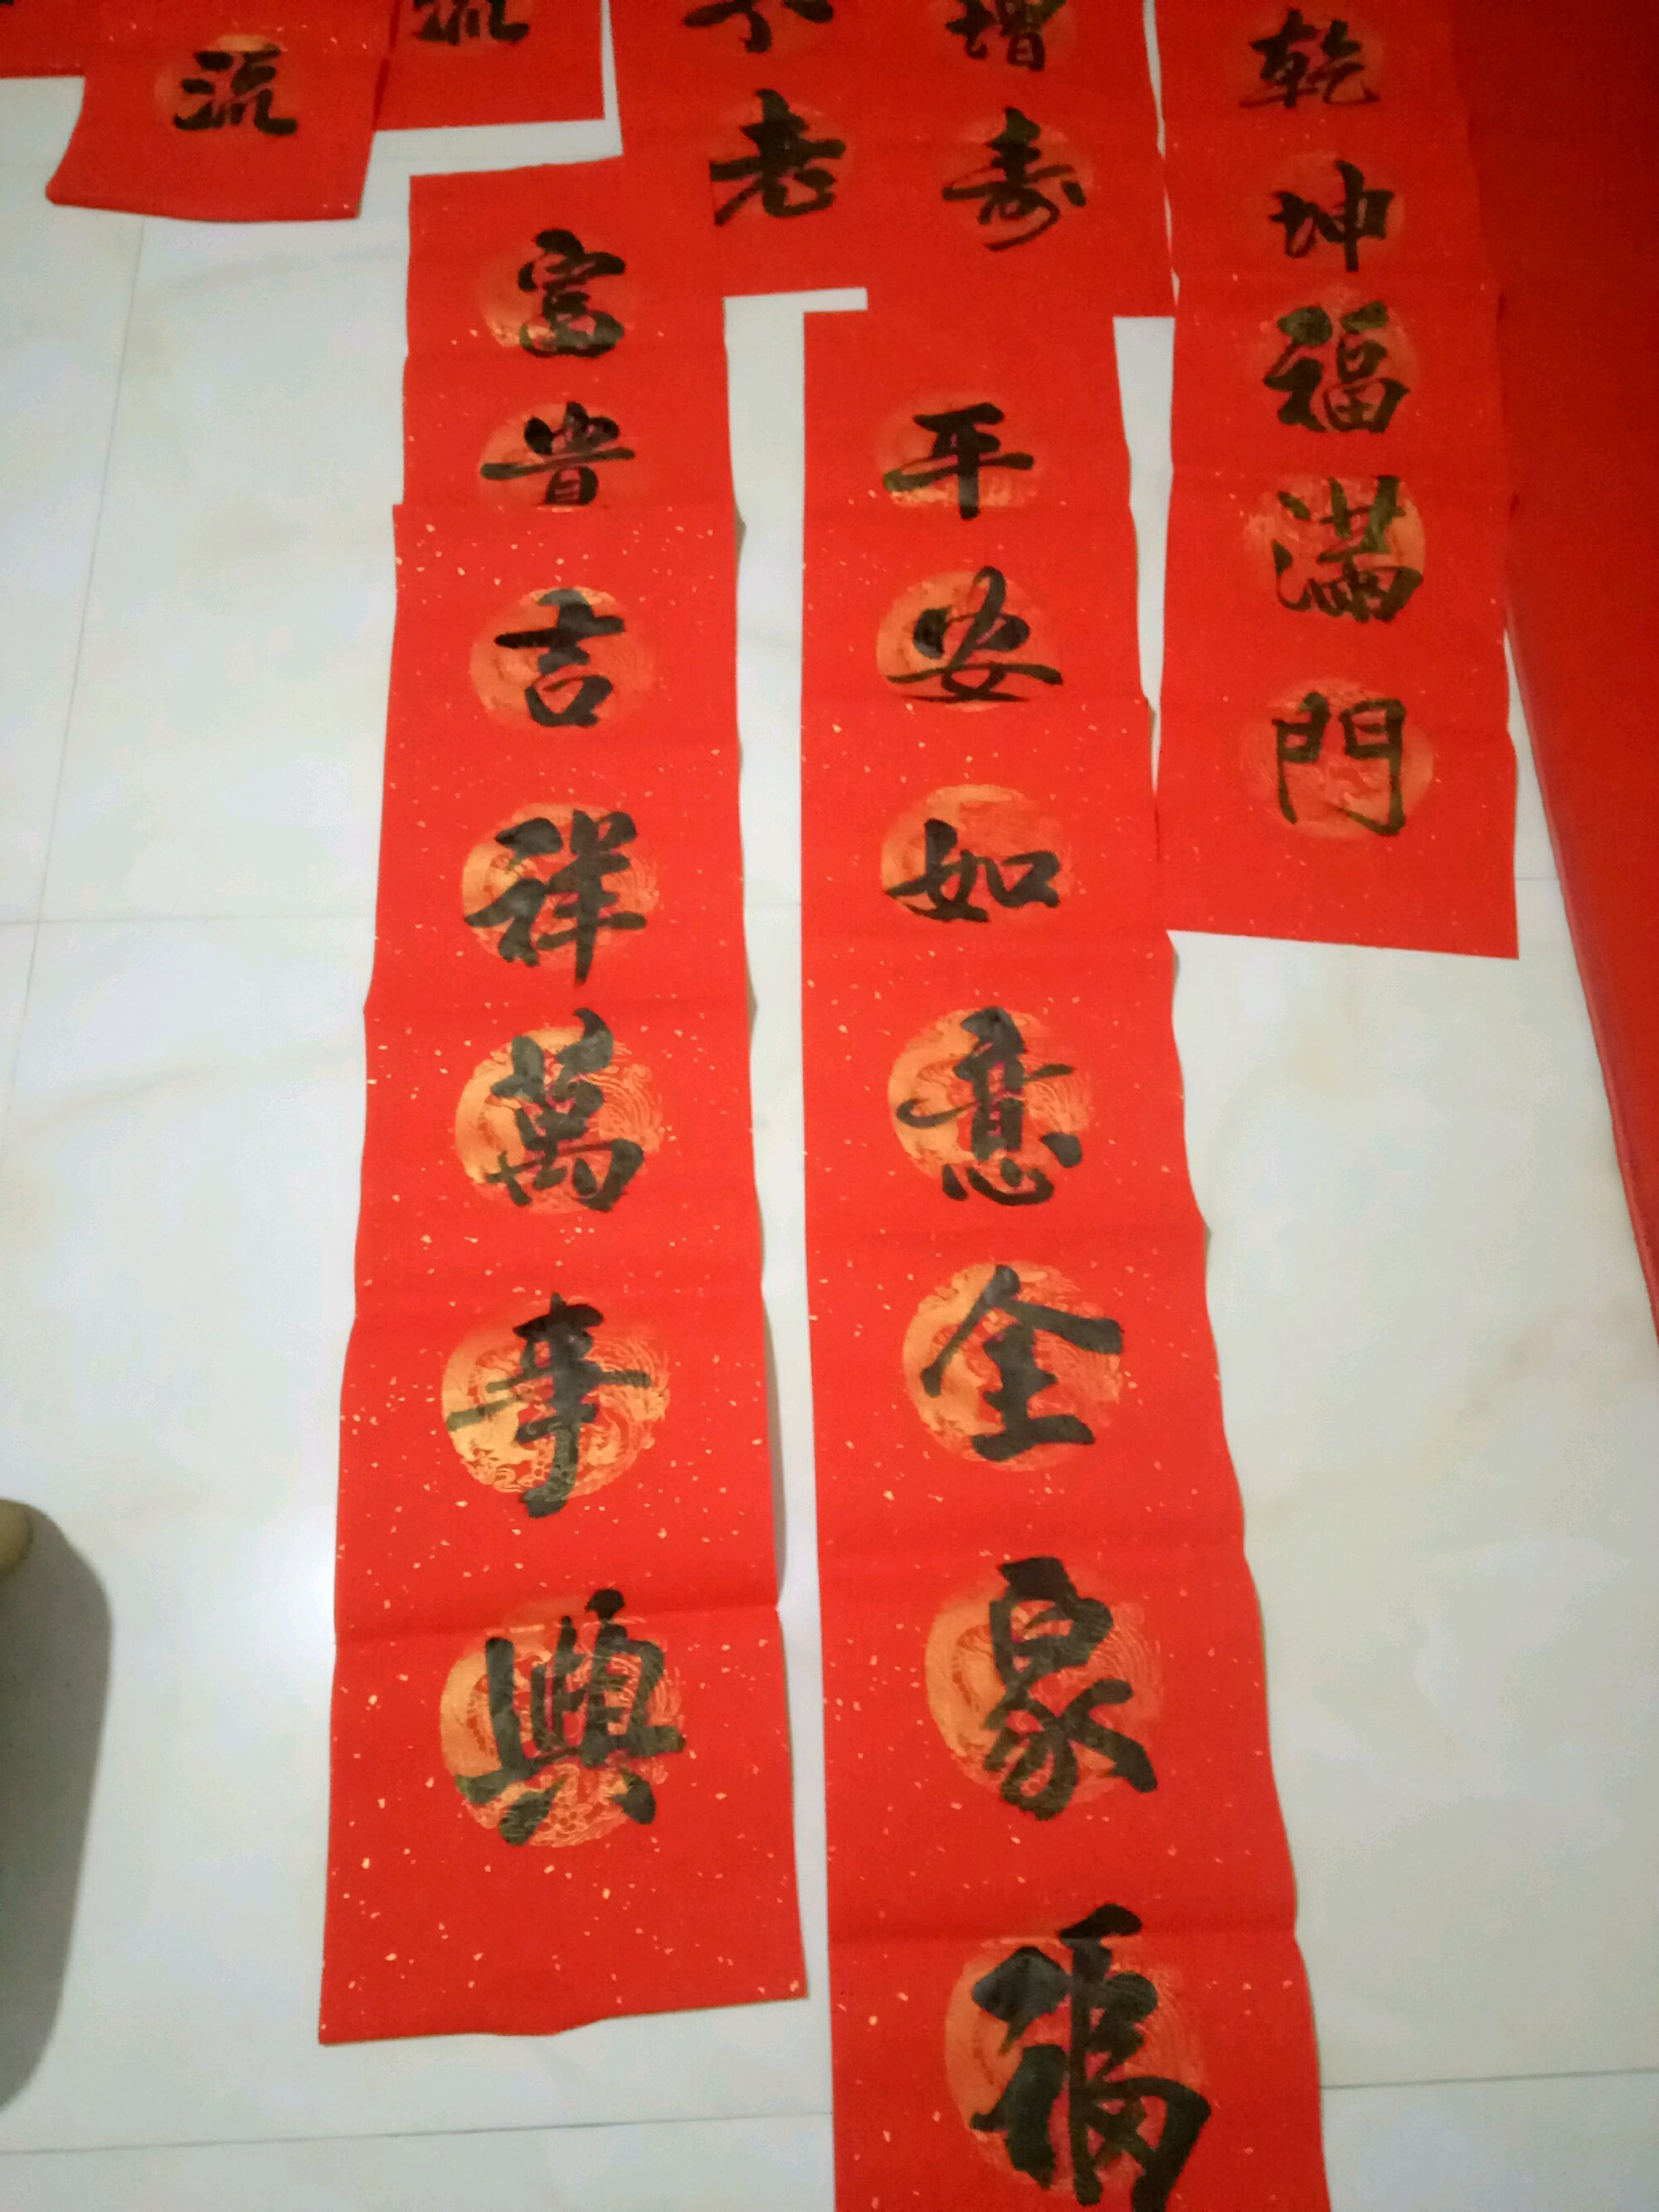 乾坤福滿門
增寿
不老
流
流
平安如意全家福
富貴吉祥萬事興